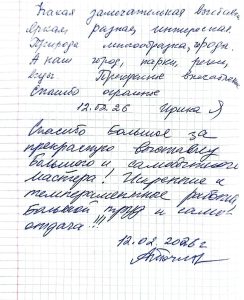 Какая замечательная выставка
Яркая, разная, интересная.
Природа многообразна,
А наш город, парки, речки,
Спасибо огромное
12.02.26 Ирина Я
Спасибо большое за
прекрасную выставку
большого и самобытного
мастера! Искренние и
темпераментные работы,
Большой труд и само-
отдача!!!
12.02.2026г